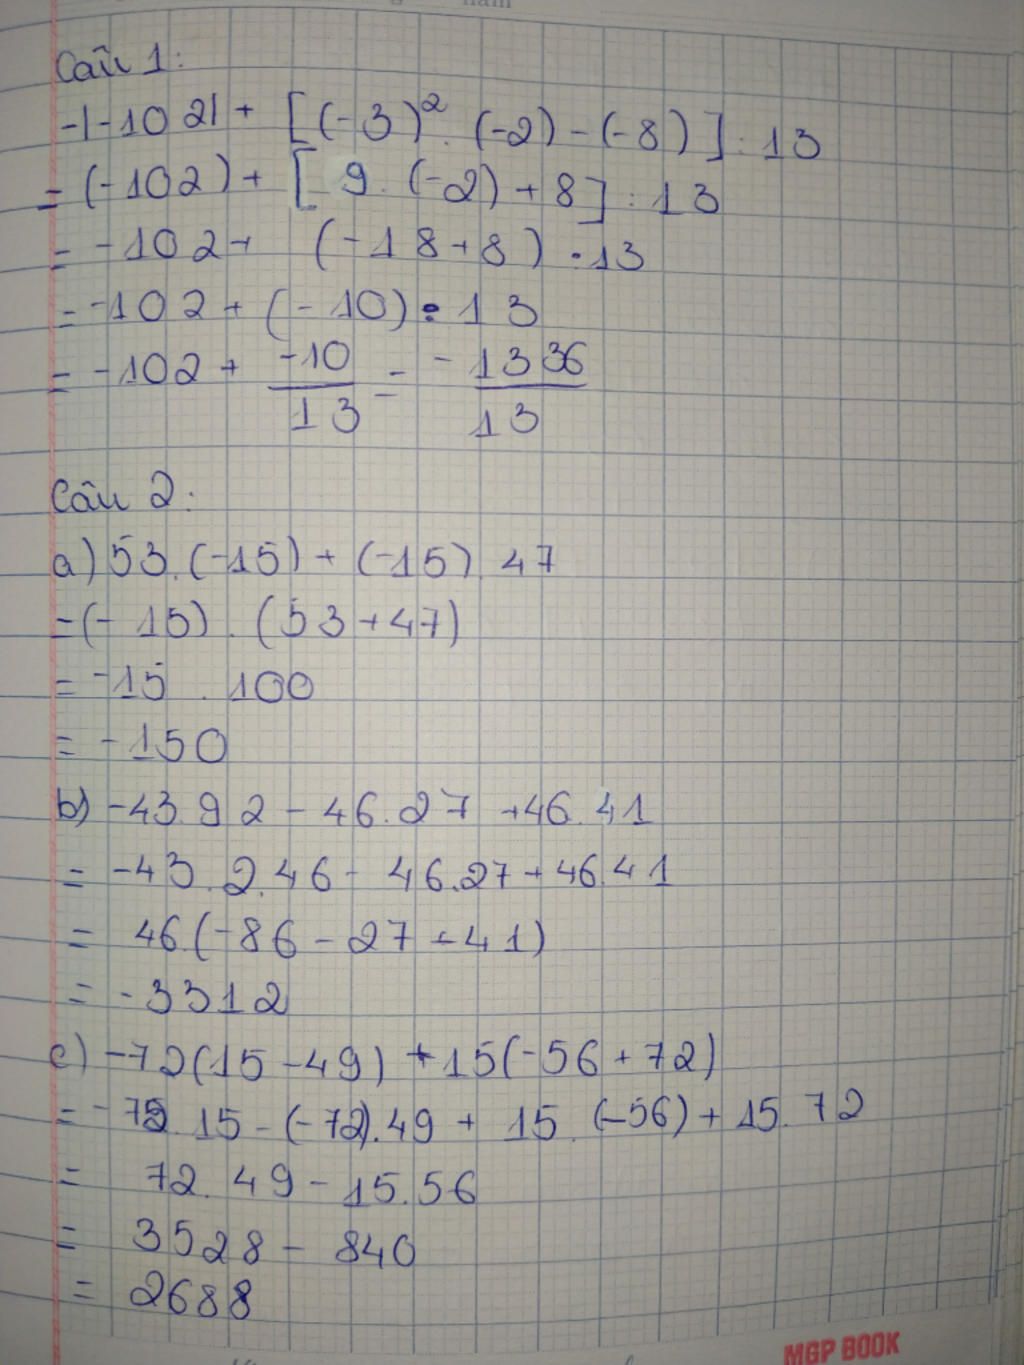 Câu 1:
-|-102| + [(-3)². (-2) - (-8)] : 13
= (-102) + [ 9. (-2) + 8] : 13
= -102 + (-18 + 8) : 13
= -102 + (-10) : 13
= -102 + -10/13 = -1336/13
Câu 2:
a) 53. (-15) + (-15). 47
= (-15) . (53 + 47)
= -15 . 100
= -150
b) -43.92 - 46.27 + 46.41
= -43.2.46 - 46.27 + 46.41
= 46.(-86 - 27 + 41)
= -3312
c) -72(15 - 49) + 15(-56 + 72)
= -72.15 - (-72).49 + 15.(-56) + 15.72
= 72.49 - 15.56
= 3528 - 840
= 2688
MGP BOOK